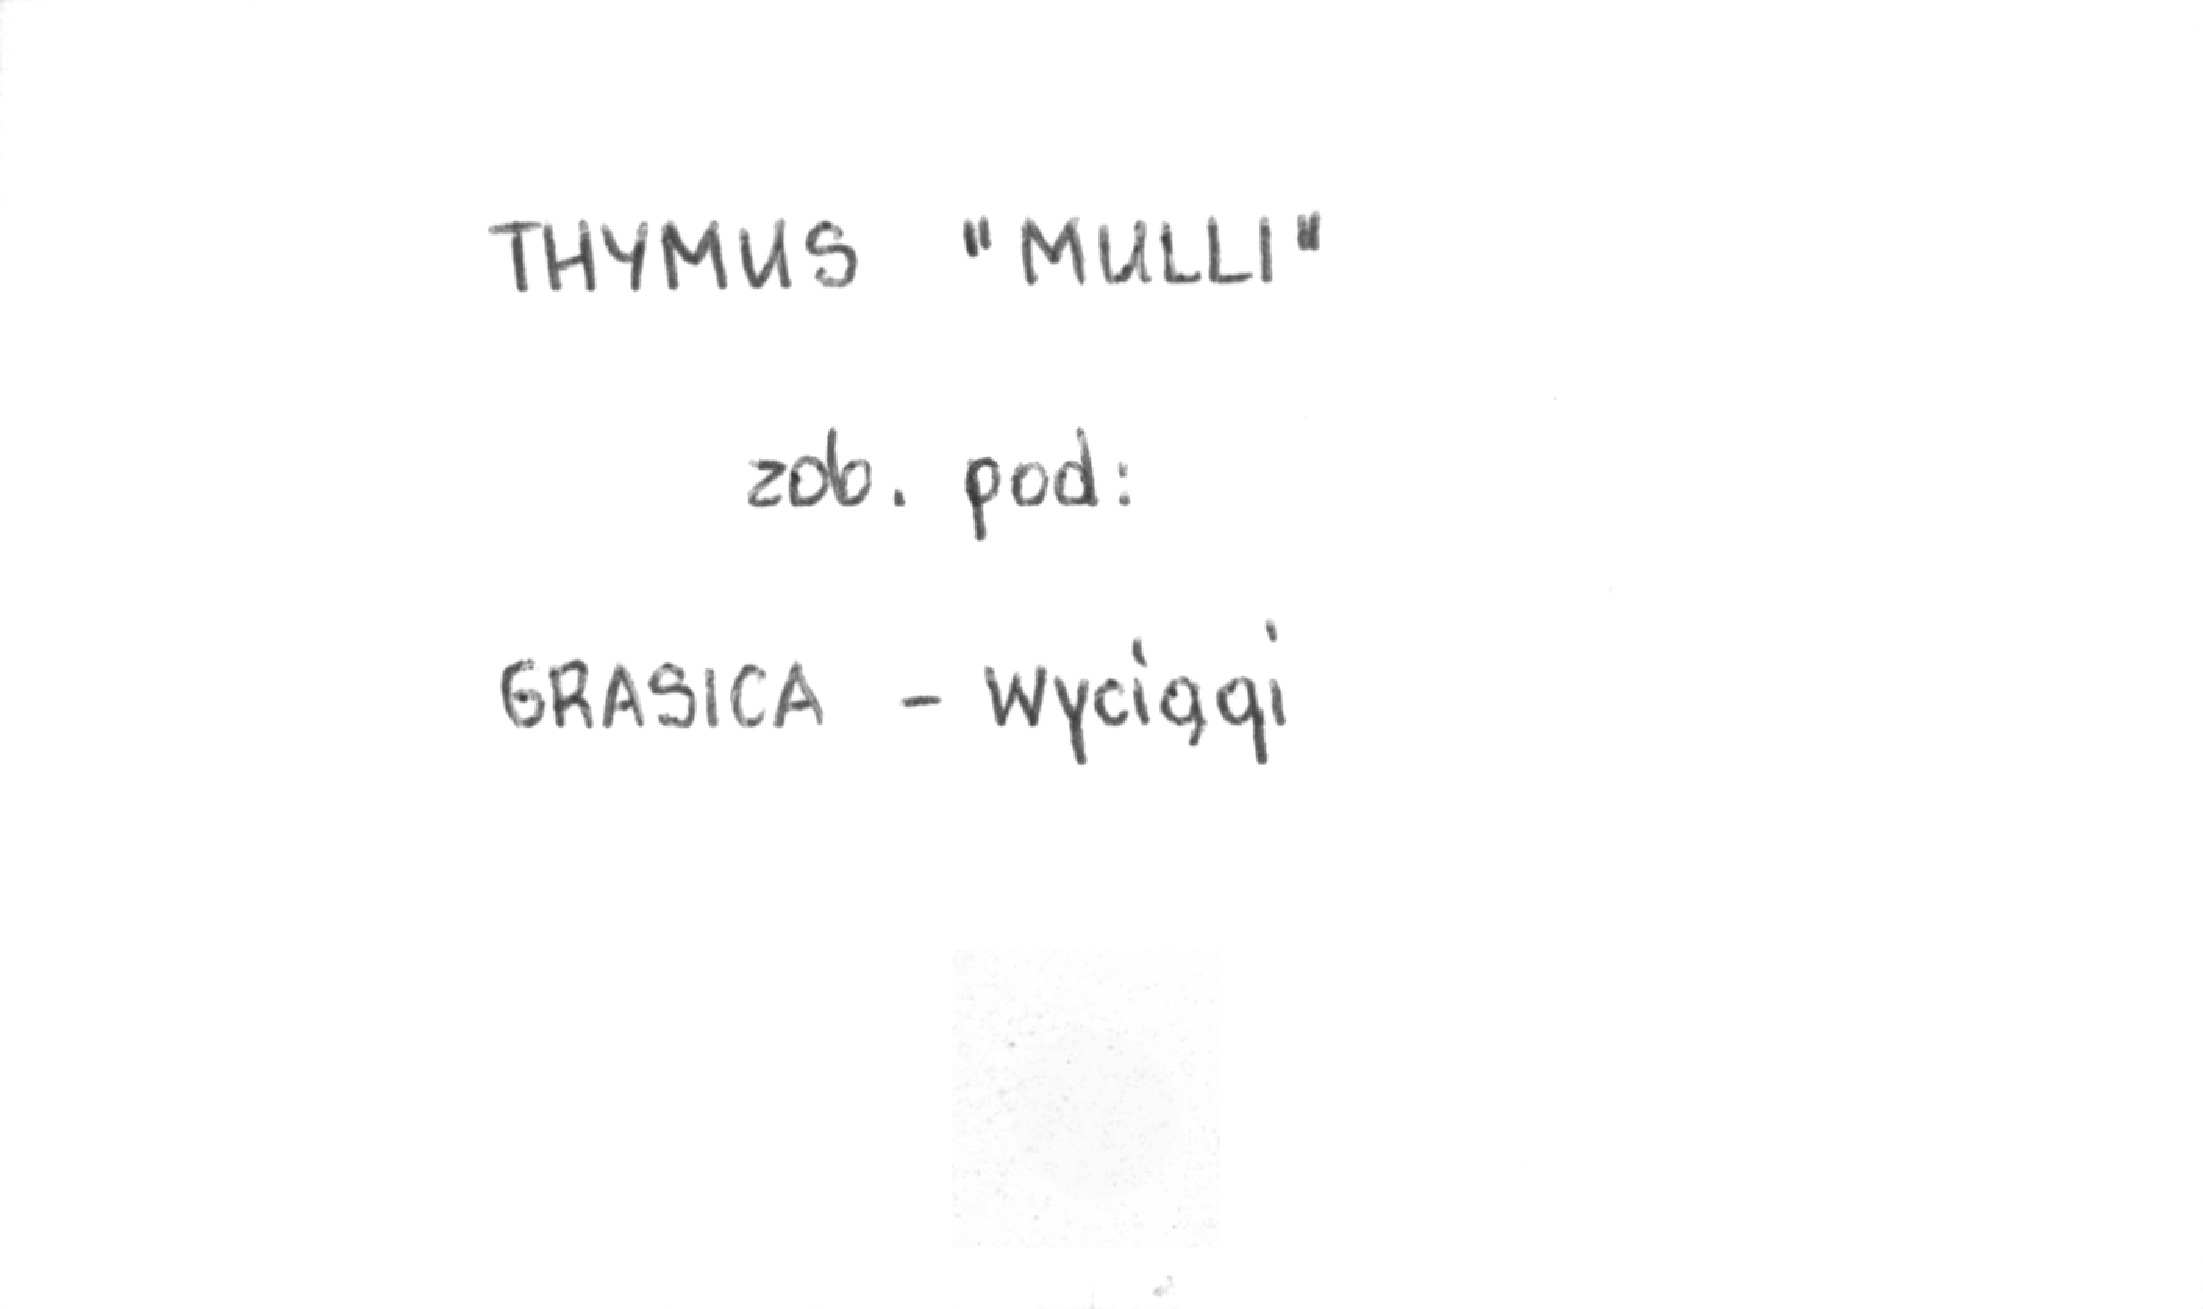 THYMUS "MULLI"
zob. pod:
GRASICA - Wyciągi